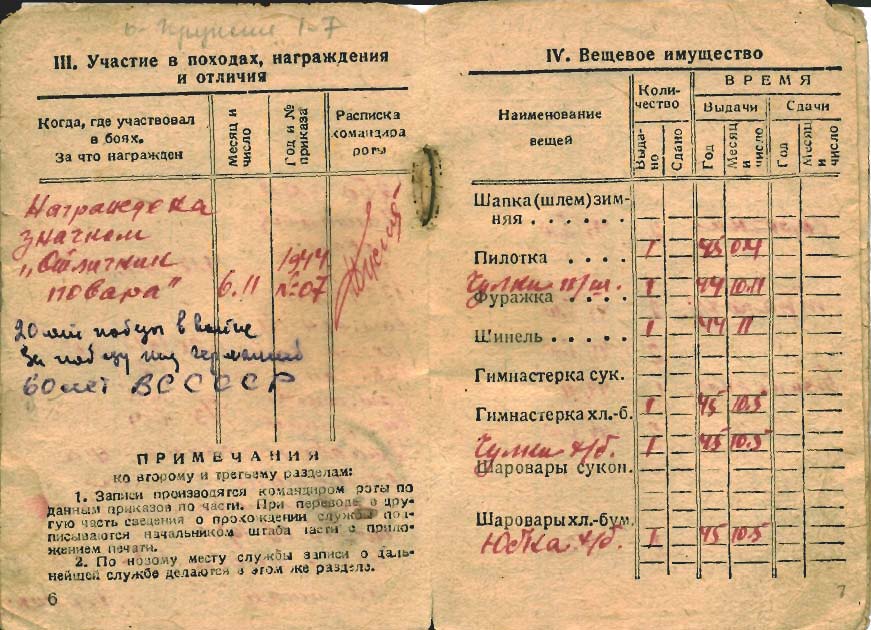 III. Участие в походах, награждения
и отличия
Когда, где участвовал
в боях.
За что награжден
Месяц и
число
Год и №
приказа
Расписка
командира
роты
Награждека
значком
„Отличник
повара"
6.11
1944
№07
20 лет победы в войне
За победу над Германией
60 лет ВС СССР
ПРИМЕЧАНИЯ
ко второму и третьему разделам:
1. Записи производятся командиром роты по
данным приказов по части. При переводе в дру-
гую часть сведения о прохождении службы под-
писываются начальником штаба части с прило-
жением печати.
2. По новому месту службы записи о даль-
нейшей службе делаются в этом же разделе.
6
IV. Вещевое имущество
Наименование
вещей
Коли-
чество
ВРЕМЯ
Выдачи
Сдачи
Выда-
но
Сдано
Год
Месяц
и
число
Год
Месяц
и
число
Шапка (шлем) зим-
няя . . . . . .
Пилотка . . . . 1 45 04
Чулки п/ш.
Фуражка . . . . 1 44 10.11
Шинель . . . . . 1 44 11
Гимнастерка сук.
Гимнастерка хл.-б. 1 45 10.5
Чулки х/б. 1 45 10.5
Шаровары сукон.
Шаровары хл.-бум.
Юбка х/б. 1 45 10.5
7